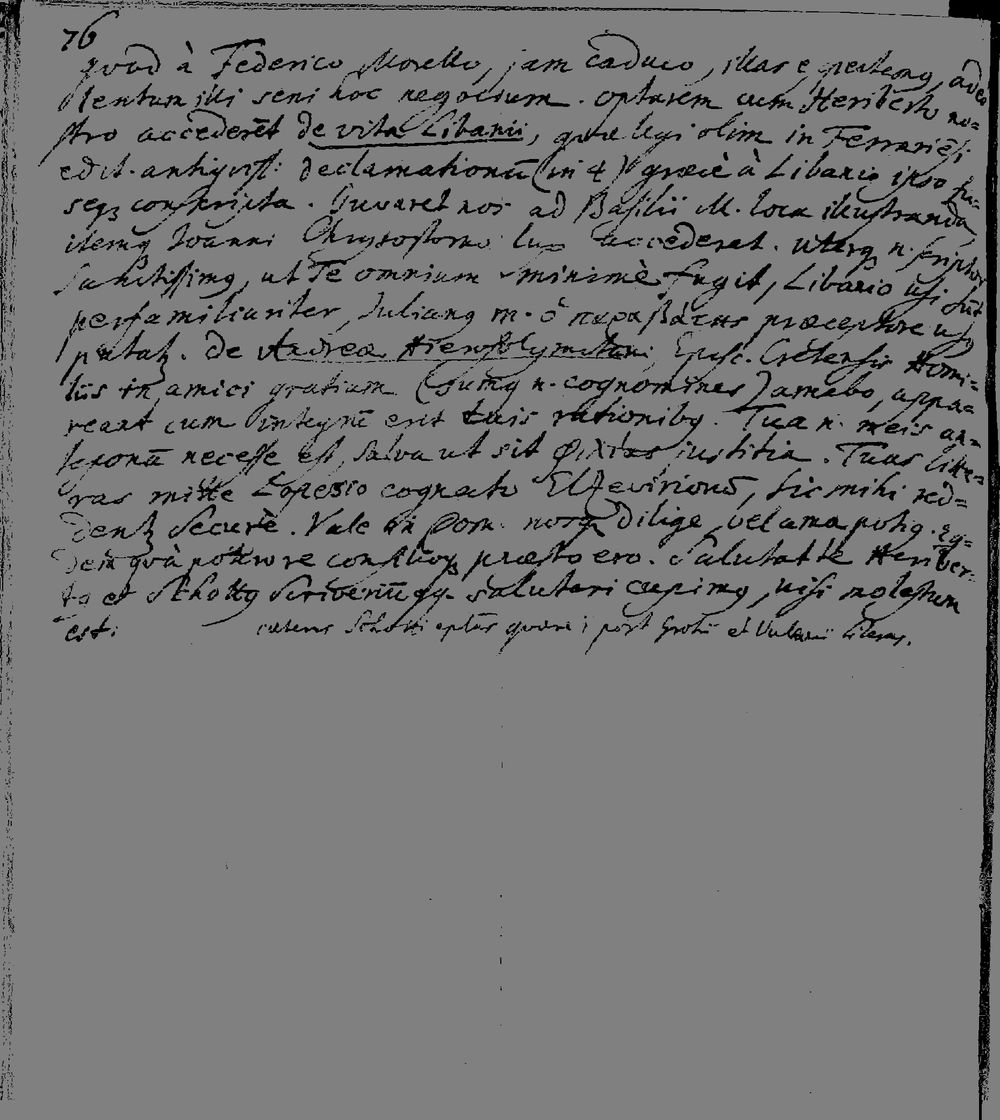 76
quod à Federico Morello, jam caduco, illas expectemq, adeo
lentum illi seni hoc negocium. optarem cum Heriberto no-
stro accederēt de vita Libanii, quae legi olim in Ferrariēsi
edit. antiquiss: declamationū (in 4) graecè à Libanio ipso fu-
seqꝫ conscripta. Juvaret nos ad Basilii M. loca illustranda,
itemq Joanni Chrysostomo lux accederet. uterq n. scriptor
Sanctissimq, ut Te omnium minimè fugit, Libanio usi sūt
perfamiliariter, Julianq m. ὁ παραβάτης praeceptore us
putatꝫ. De Andreae Hierosolymitani Episc. Cretensis Homi-
liis in amici gratiam (sumq n. cognomines) amabo, appa-
reant cum integrū erit tuis rationibq. Tua n. meis an-
teponā necesse est, salva ut sit φιλίας iustitia. Tuas litte-
ras mitte Lopesio cognato Elzevirionū, sic mihi red-
dentꝫ Secure. Vale in Dom. nosq dilige, vel ama potiq. Eq-
dem quà potero re consilioqꝫ praesto ero. Salutat te Heriber-
tq et Schottq Scriveriūqq. salutari cupimq, nisi molestum
est.
caeterae Schotti eplas quaere post Grotii et Vulcanii literas.